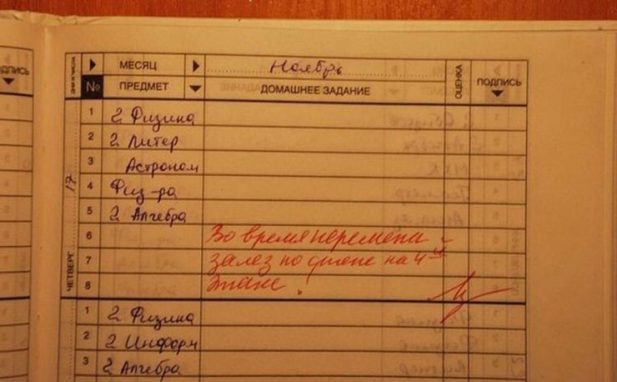 ДПИСЬ
МЕСЯЦ Ноябрь
№ ПРЕДМЕТ ДОМАШНЕЕ ЗАДАНИЕ ОЦЕНКА ПОДПИСЬ
ЧЕТВЕРГ 17
1 2 Физика
2 2 Литер
3 Астроном
4 Физ-ра
5 2 Алгебра
6 Во время перемена
7 залез по стене на 4-й
8 этаж!
1 2 Физика
2 2 Информ
3 2 Алгебра